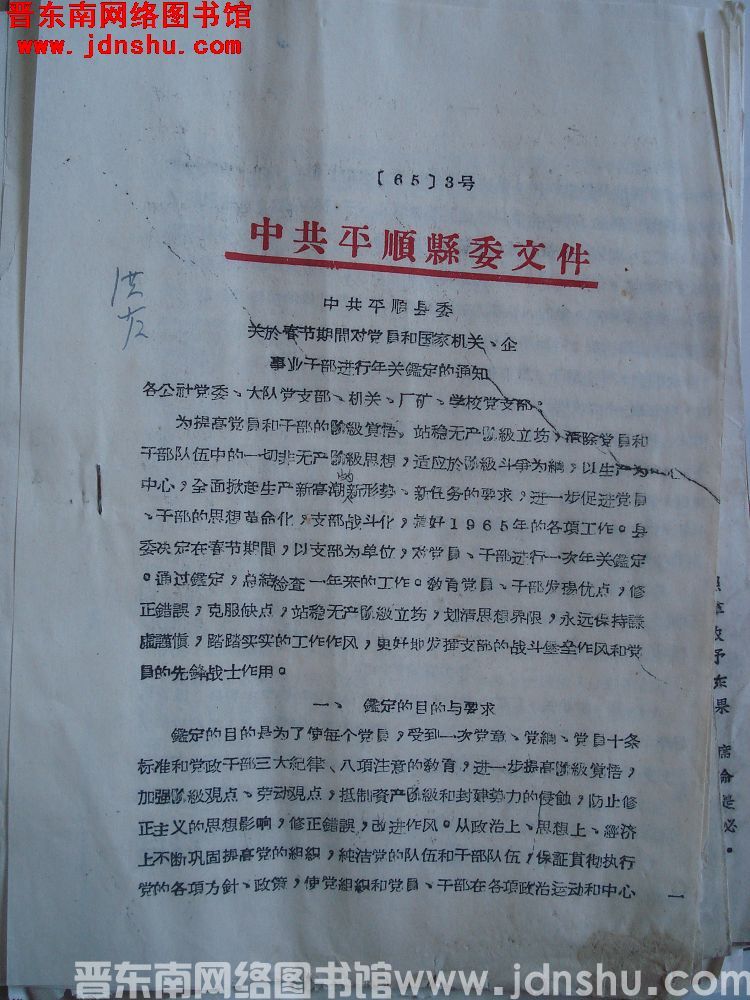 晋东南网络图书馆
www.jdnshu.com
〔65〕3号
中共平順縣委文件
中共平順县委
关於春节期間对党員和国家机关、企
事业干部进行年关鑑定的通知
各公社党委、大队党支部、机关、厂矿、学校党支部：
为提高党員和干部的阶級覚悟，站稳无产阶級立坊，清除党員和
干部队伍中的一切非无产阶級思想，适应於阶級斗爭为綱，以生产为中心
中心，全面掀起生产新高潮的新形势、新任务的要求，进一步促进党員
、干部的思想革命化，支部战斗化，搞好1965年的各項工作。县
委决定在春节期間，以支部为单位，对党員、干部进行一次年关鑑定
。通过鑑定，总結检查一年来的工作。教育党員、干部发揚优点，修
正錯誤，克服缺点，站稳无产阶級立坊，划清思想界限，永远保持謙
虚謹慎，踏踏实实的工作作风，更好地发揮支部的战斗堡垒作风和党
員的先鋒战士作用。
一、鑑定的目的与要求
鑑定的目的是为了使每个党員，受到一次党章、党綱、党員十条
标准和党政干部三大紀律、八項注意的教育，进一步提高阶級覚悟，
加强阶級观点、劳动观点，抵制資产阶級和封建势力的侵蝕，防止修
正主义的思想影响，修正錯誤，改进作风。从政治上、思想上、經济
上不断巩固提高党的組織，純洁党的队伍和干部队伍，保証貫彻执行
党的各項方針、政策，使党組織和党員、干部在各項政治运动和中心
一
晋东南网络图书馆www.jdnshu.com